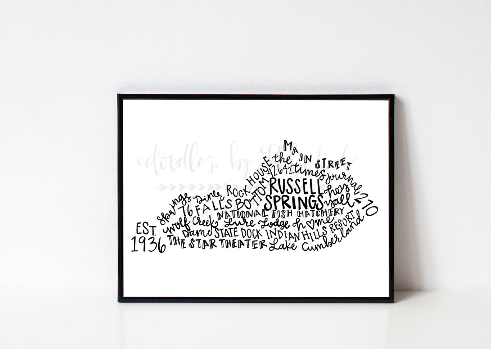 doodles by
MAIN STREET
the times journal
ROCK HOUSE BOTTOM 42642
RUSSELL SPRINGS
hey y'all
210
Springs Diner
76 FALLS
NATIONAL FISH HATCHERY
Wolf Creek Dam
Lure Lodge
home
STATE DOCK
INDIAN HILLS RESORT
THE STAR THEATER
Lake Cumberland
EST.
1936